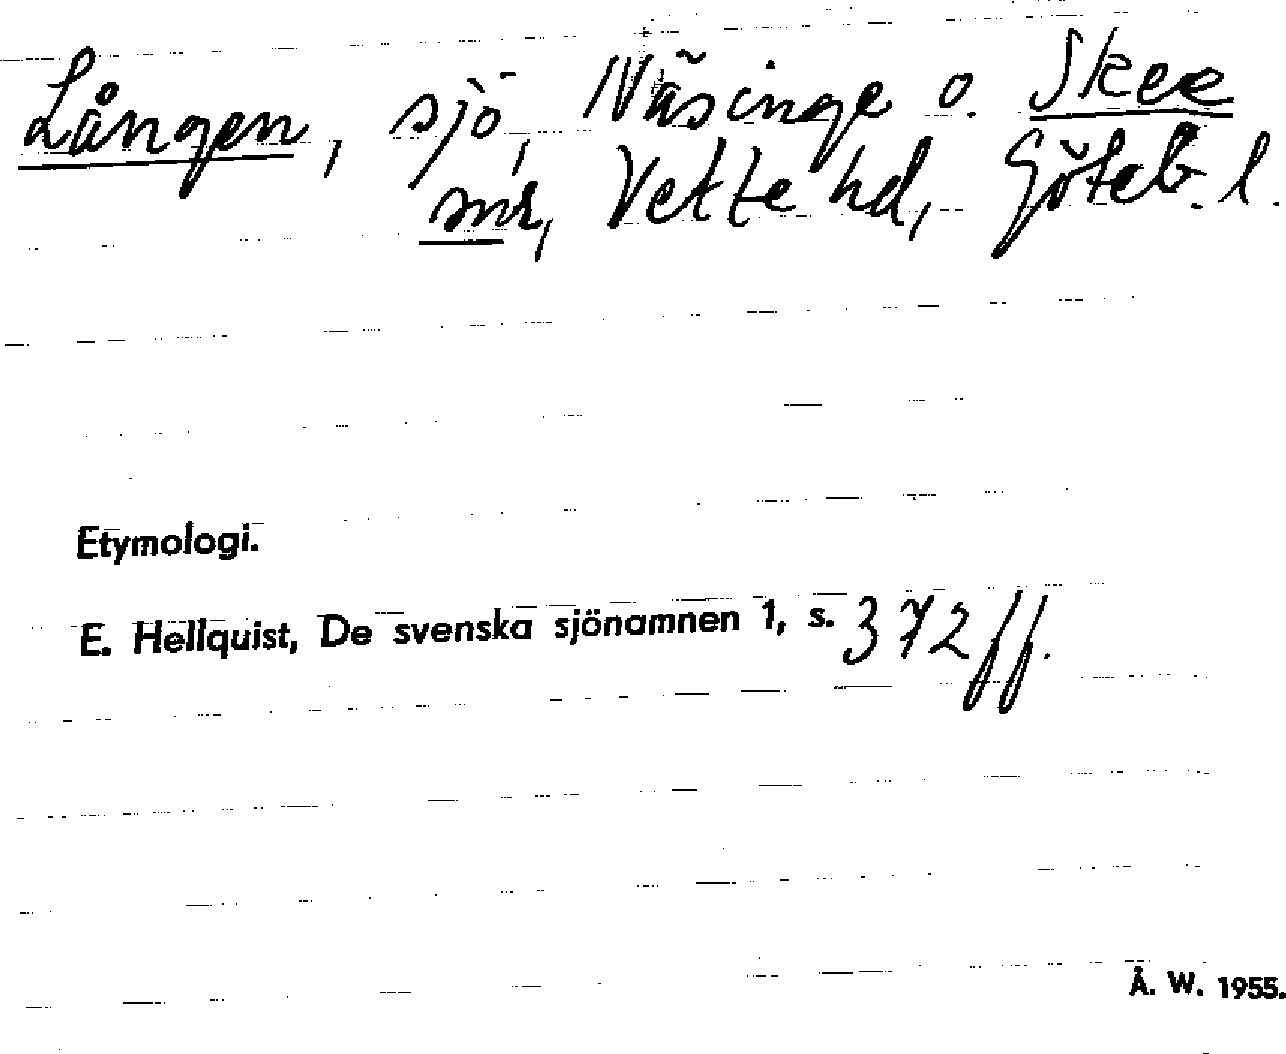 Lången, sjö, Näsinge o. Skee
snr, Vette hd, Göteb. l.
Etymologi.
E. Hellquist, De svenska sjönamnen 1, s. 372 ff.
Å. W. 1955.